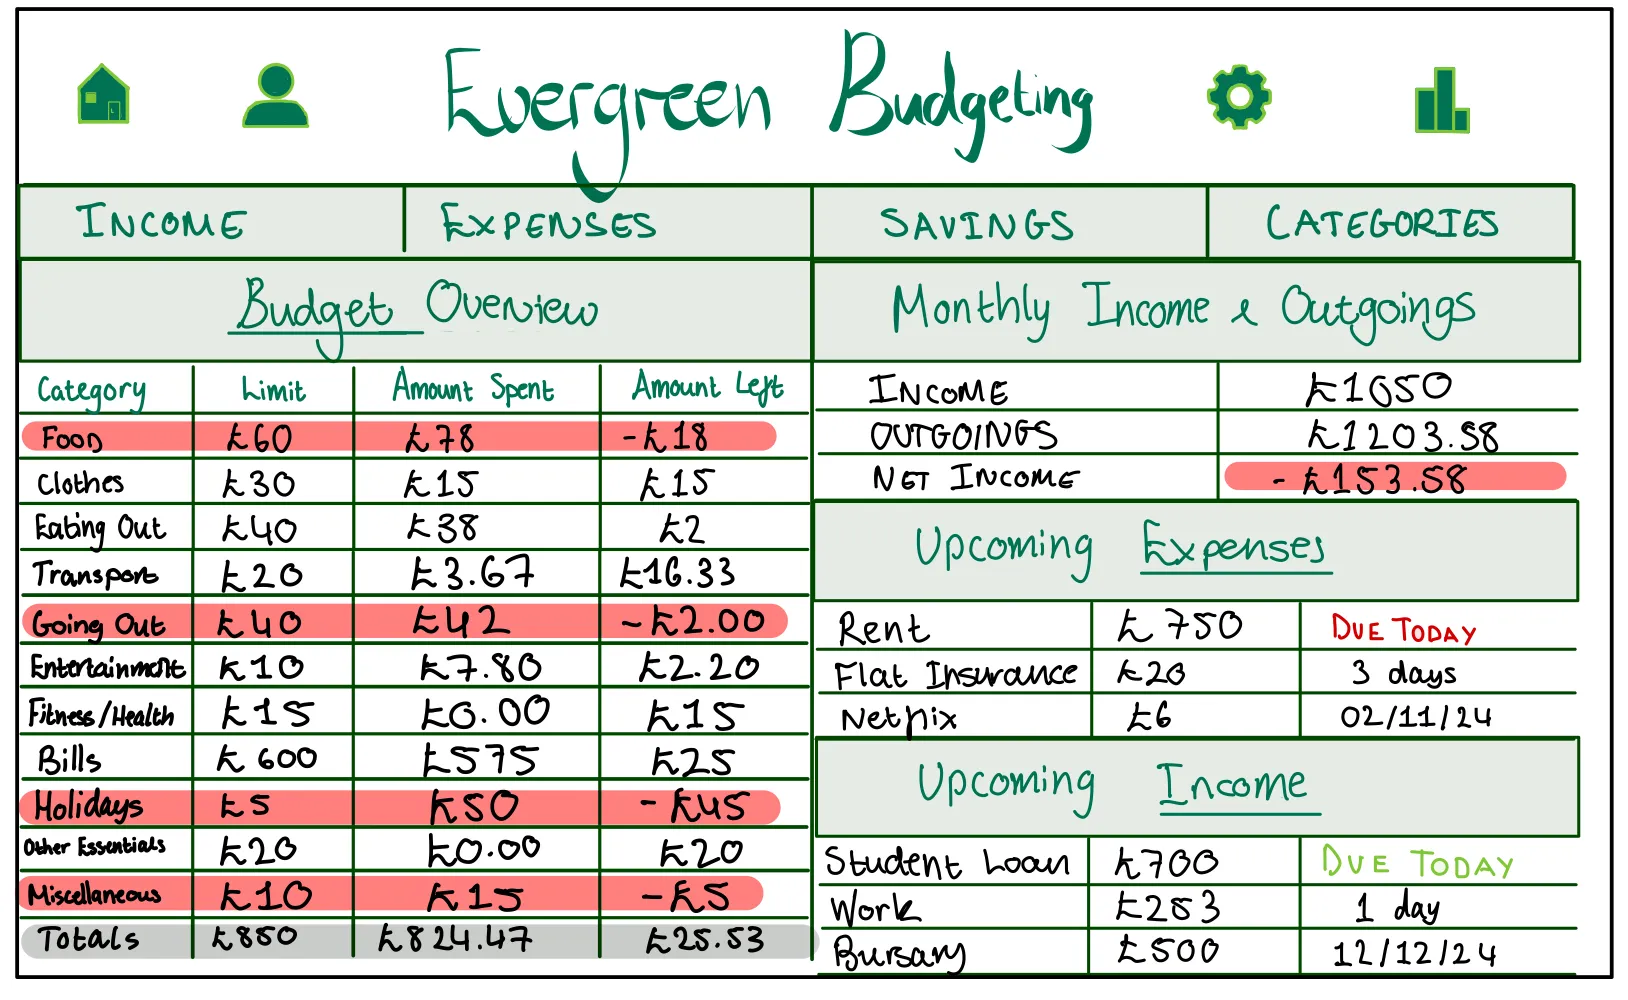 Evergreen Budgeting
INCOME EXPENSES SAVINGS CATEGORIES
Budget Overview
Category Limit Amount Spent Amount Left
Food £60 £78 -£18
Clothes £30 £15 £15
Eating Out £40 £38 £2
Transport £20 £3.67 £16.33
Going Out £40 £42 -£2.00
Entertainment £10 £7.80 £2.20
Fitness/Health £15 £0.00 £15
Bills £600 £575 £25
Holidays £5 £50 -£45
Other Essentials £20 £0.00 £20
Miscellaneous £10 £15 -£5
Totals £850 £824.47 £25.53
Monthly Income & Outgoings
INCOME £1050
OUTGOINGS £1203.58
NET INCOME -£153.58
Upcoming Expenses
Rent £750 DUE TODAY
Flat Insurance £20 3 days
Netflix £6 02/11/24
Upcoming Income
Student Loan £700 DUE TODAY
Work £253 1 day
Bursary £500 12/12/24